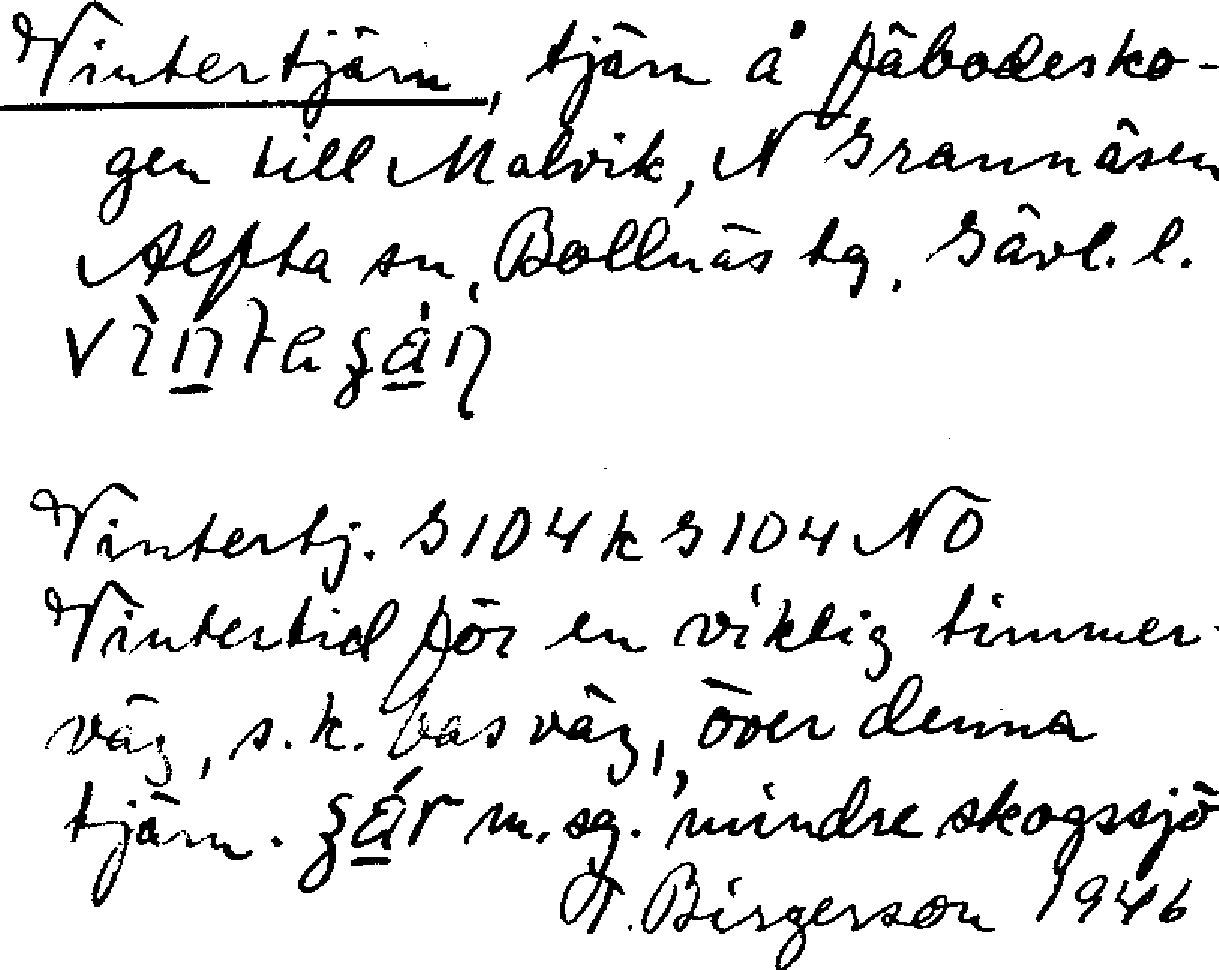 Vintertjärn, tjärn å fäbodesko-
gen till Malvik, N Grannäsen
Alfta sn, Bollnäs tg, Gävl. l.
Vintertj. G 104 k G 104 NO
Vintertid för en viktig timmer-
väg, s.k. basväg, över denna
tjärn. m.sg. 'mindre skogssjö
T. Birgerson 1946